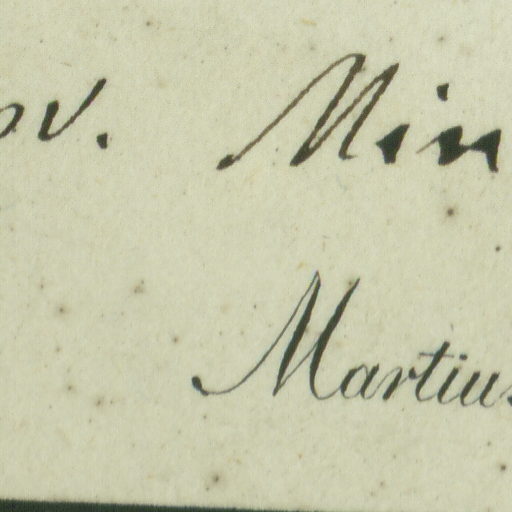 ov. Min
Martius